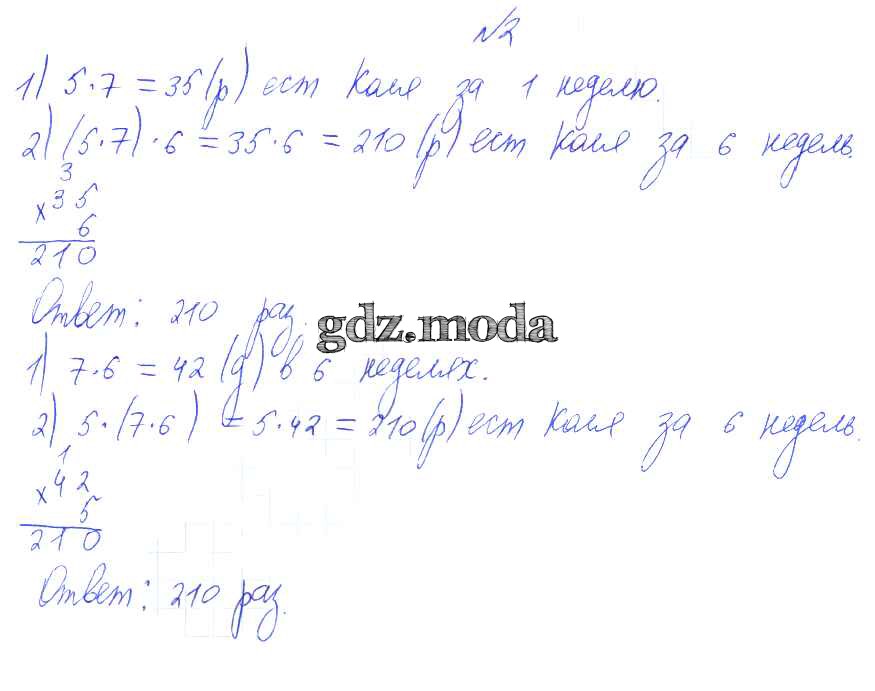 №2
1) 5·7 = 35 (р) ест Коля за 1 неделю.
2) (5·7)·6 = 35·6 = 210 (р) ест Коля за 6 недель.
3
×35
6
210
Ответ: 210 раз.
gdz.moda
1) 7·6 = 42 (д) в 6 неделях.
2) 5·(7·6) = 5·42 = 210 (р) ест Коля за 6 недель.
1
×42
5
210
Ответ: 210 раз.